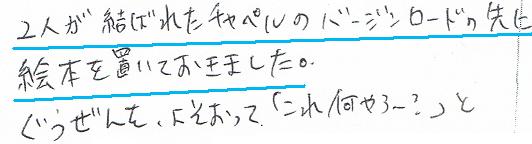 2人が結ばれたチャペルのバージンロードの先に
絵本を置いておきました。
ぐうぜんを、よそおって「これ何やろ〜？」と